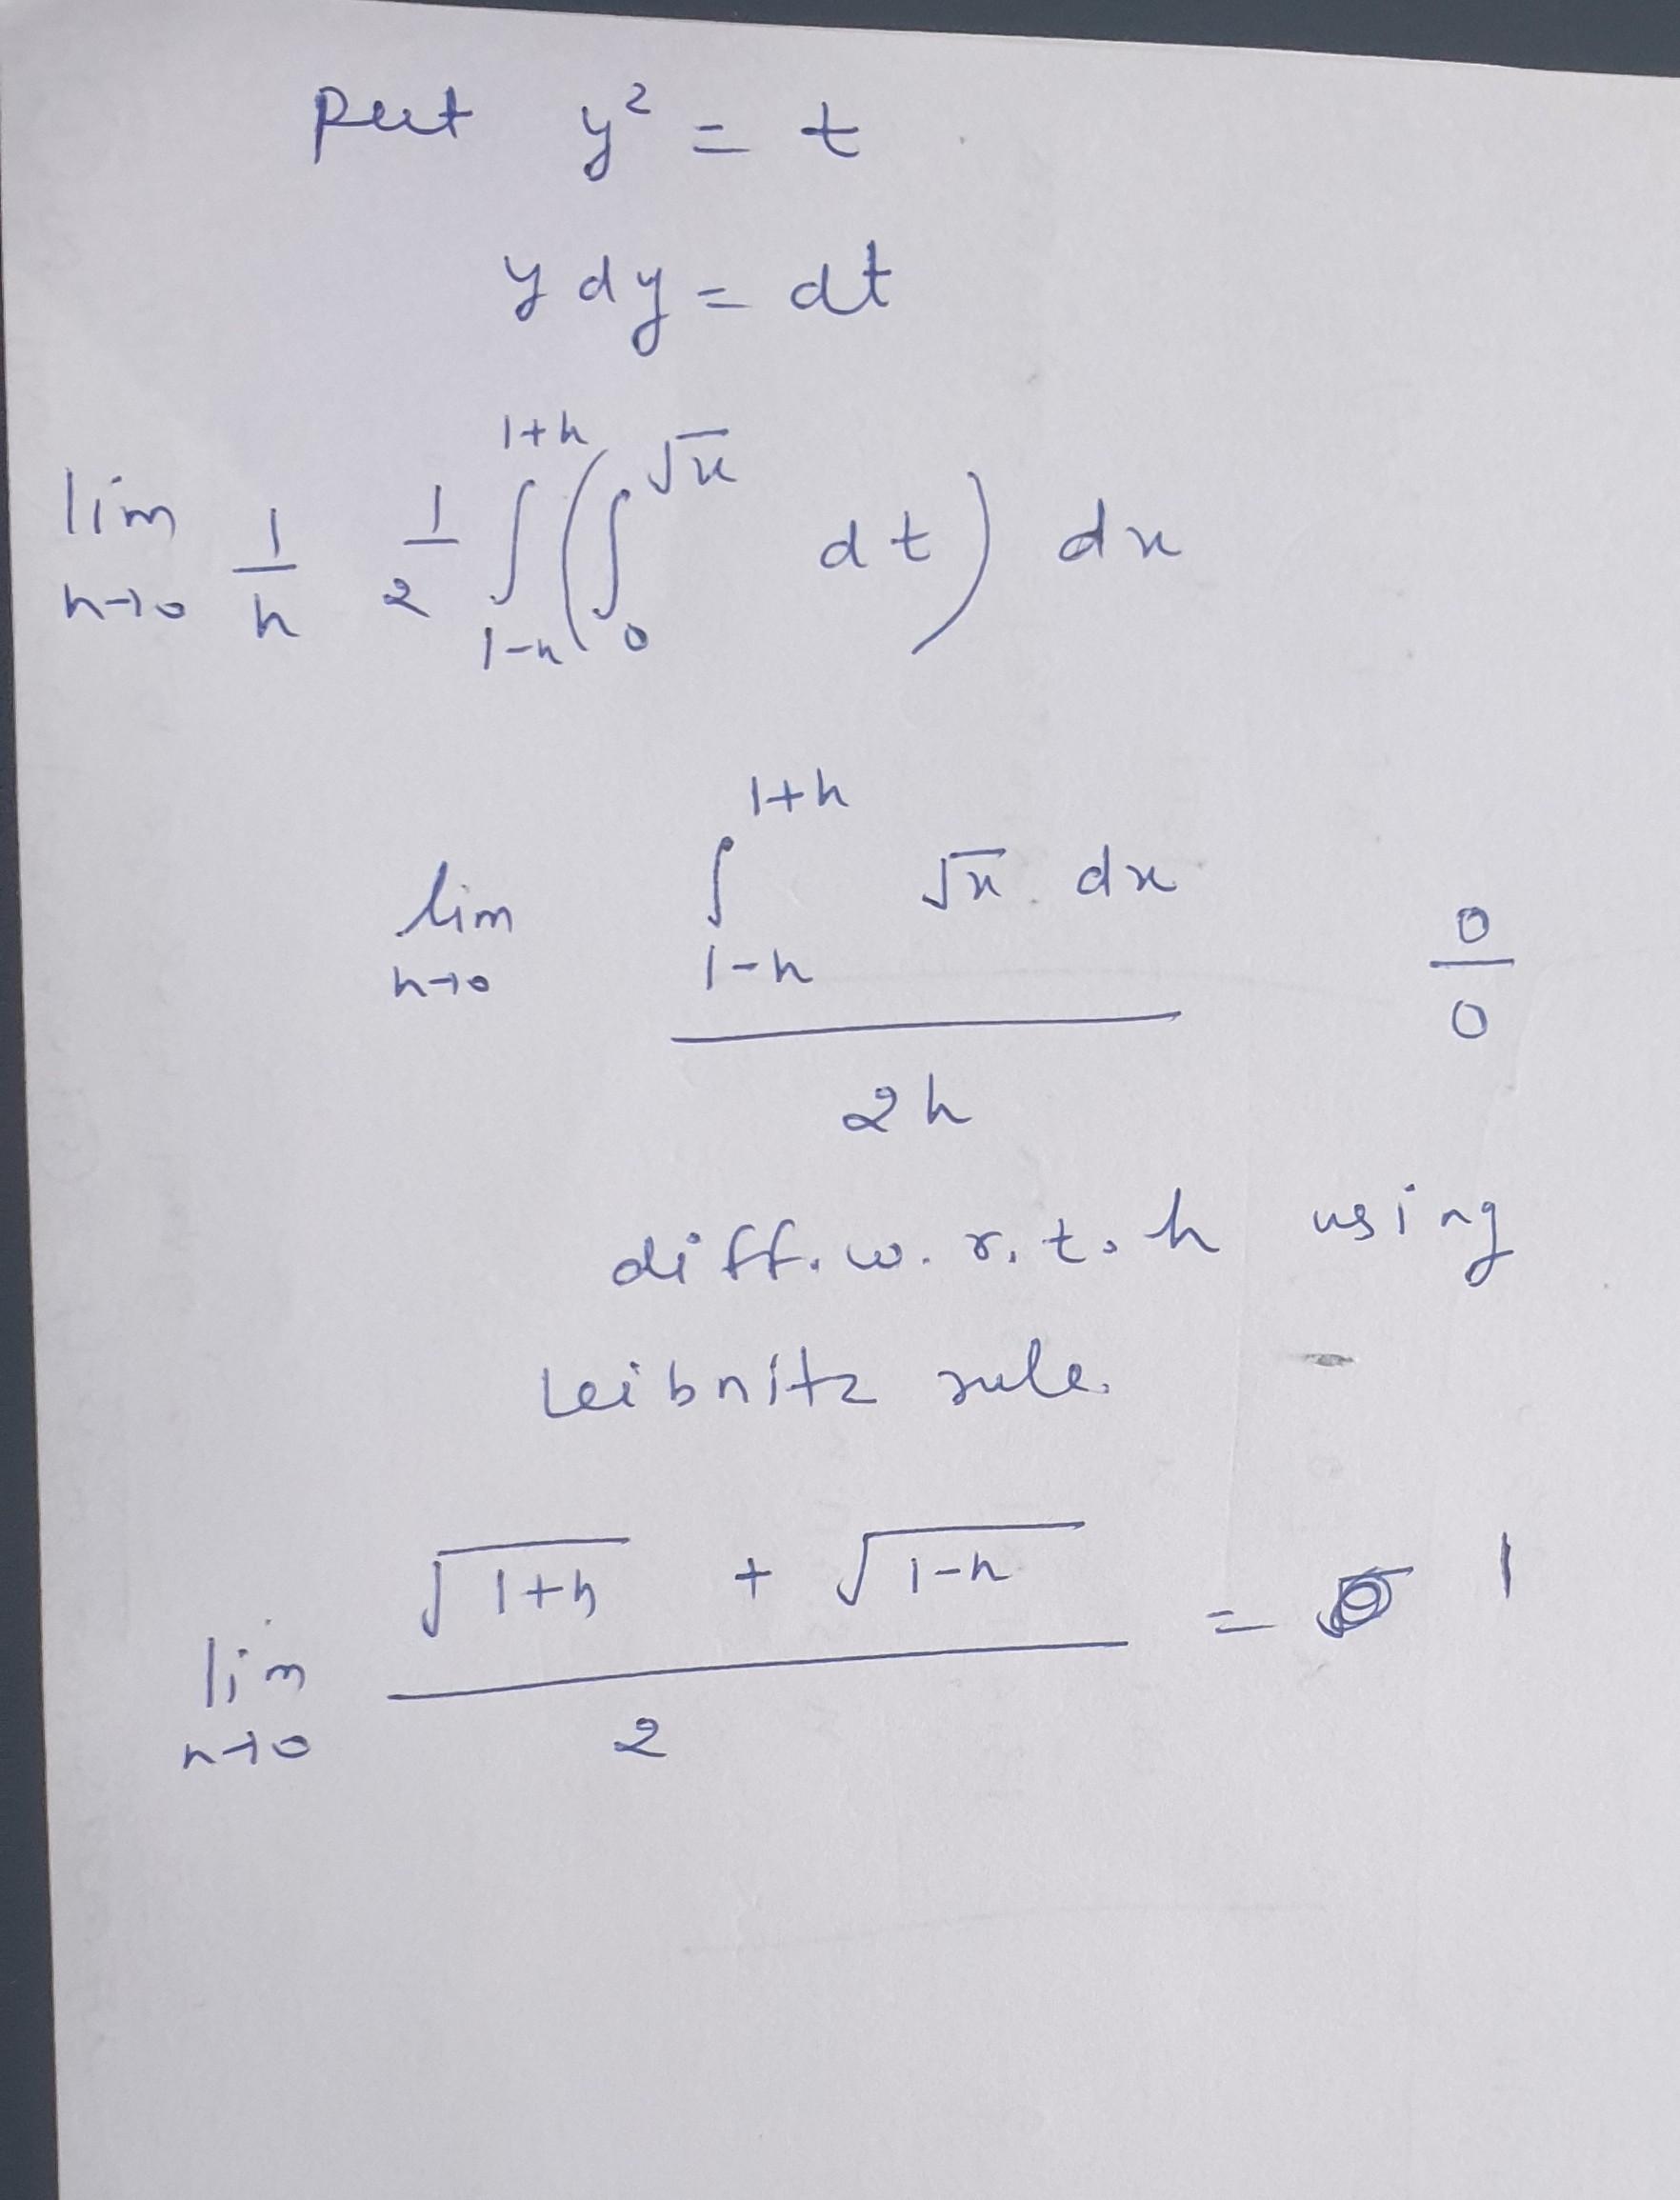 put y² = t
y dy = dt
lim h→0 1/h 1/2 ∫_{1-h}^{1+h} (∫_0^{√x} dt) dx
lim h→0 ∫_{1-h}^{1+h} √x dx / 2h 0/0
diff. w. r. t. h using
Leibnitz rule.
lim h→0 (√(1+h) + √(1-h)) / 2 = 1